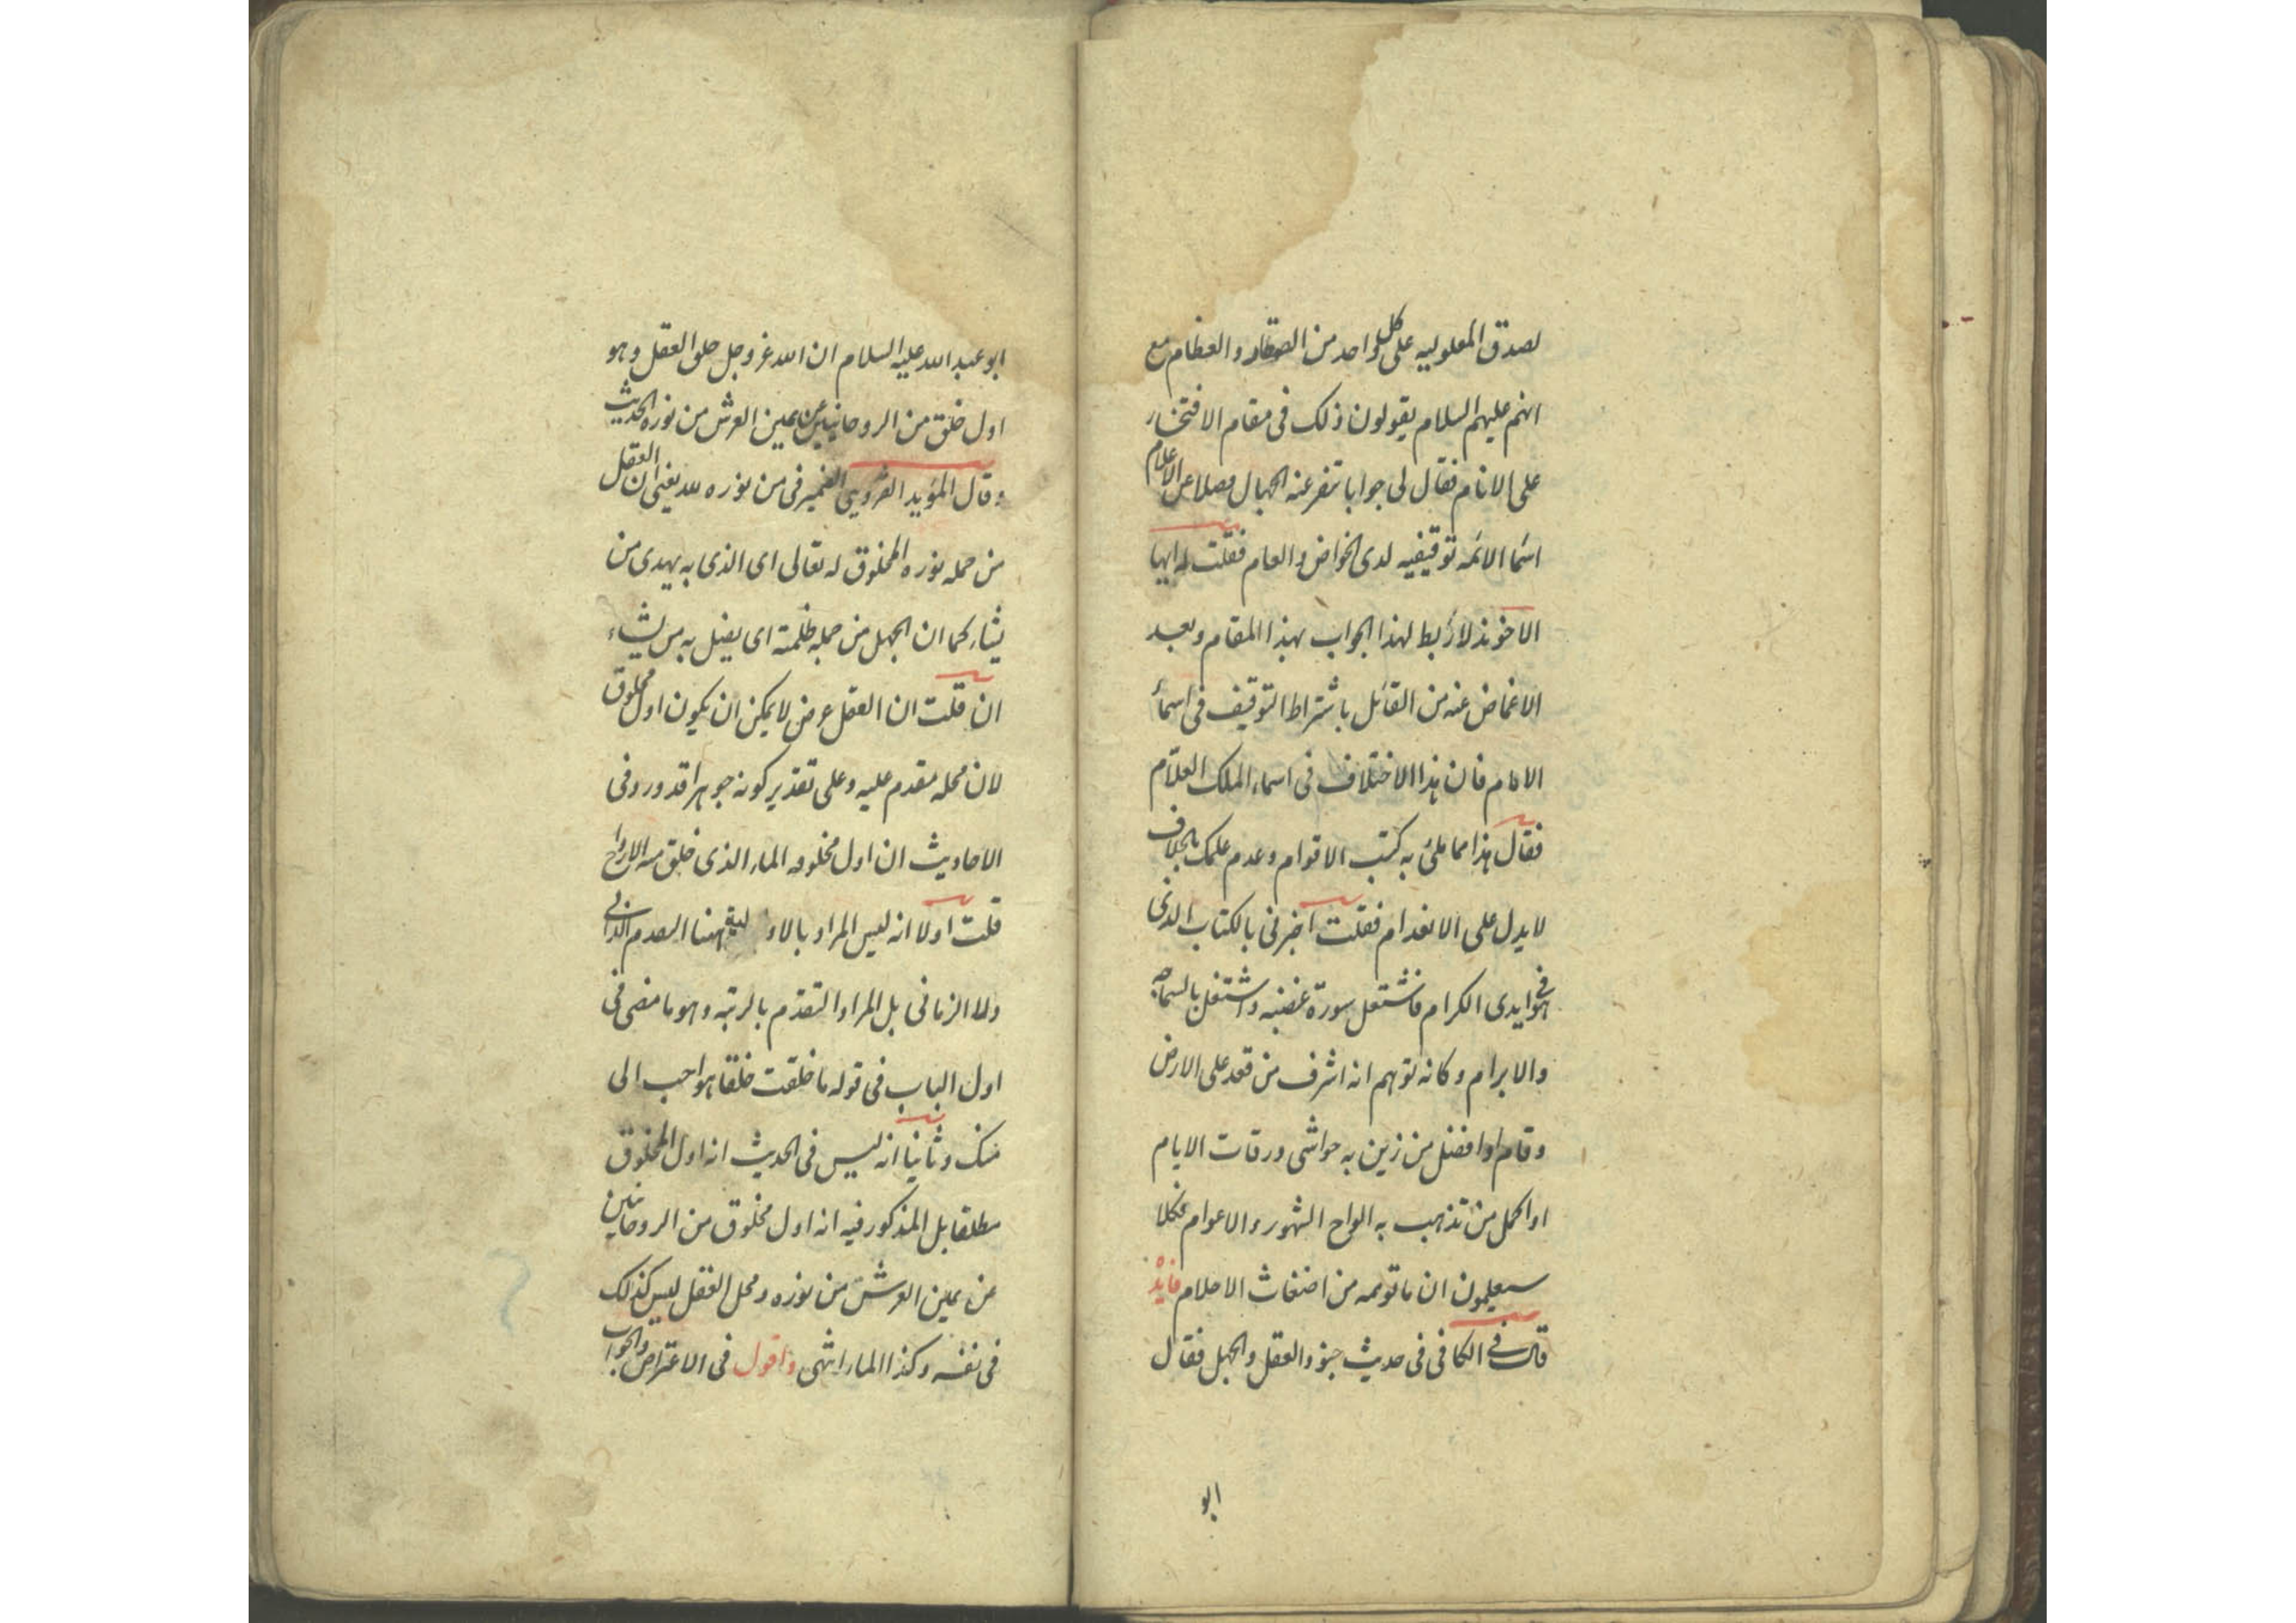 لصدق المعلوليه على كل واحد من الصغار والعظام مع
انهم عليهم السلام يقولون ذلك فى مقام الافتخار
على الانام فقال لى جوابا تنفر عنه الجبال فضلا عن الاعلام
اسما الائمه توقيفيه لدى الخواص والعام فقلت له ايها
الاخوند لا ربط لهذا الجواب بهذا المقام وبعد
الاغماض عنه من القائل باشتراط التوقيف فى اسماء
الامام فان هذا الاختلاف فى اسماء الملك العلام
فقال هذا مما ملئ به كتب الاقوام وعدم علمك بالخلاف
لا يدل على الانعدام فقلت اخبرنى بالكتاب الذى
هو فى ايدى الكرام فاشتعل سورة غضبه واشتغل بالسماجه
والابرام وكانه توهم انه اشرف من قعد على الارض
وقام او افضل من زين به حواشى ورقات الايام
او اكمل من تذهب به الواح الشهور والاعوام فكلا
سيعلمون ان ما توهمه من اضغاث الاحلام فايدة
قال فى الكافى فى حديث جنود العقل والجهل فقال
ابو
ابو عبد الله عليه السلام ان الله عز وجل خلق العقل وهو
اول خلق من الروحانيين عن يمين العرش من نوره الحديث
وقال المؤيد القزوينى الضمير فى من نوره لله يعنى ان العقل
من جمله نوره المخلوق له تعالى اى الذى به يهدى من
يشاء كما ان الجهل من جمله ظلمته اى يضل به من يشاء
ان قلت ان العقل عرض لا يمكن ان يكون اول مخلوق
لان محله مقدم عليه وعلى تقدير كونه جوهرا قد ورد فى
الاحاديث ان اول مخلوقه الماء الذى خلق منه الارواح
قلت اولا انه ليس المراد بالاوليه ههنا التقدم الذاتى
ولا الزمانى بل المراد التقدم بالرتبه وهو ما مضى فى
اول الباب فى قوله ما خلقت خلقا هو احب الى
منك وثانيا انه ليس فى الحديث انه اول المخلوق
مطلقا بل المذكور فيه انه اول مخلوق من الروحانيين
عن يمين العرش من نوره ومحل العقل ليس كذلك
فى نفسه وكذا الماء انتهى واقول فى الاعتراض والجواب